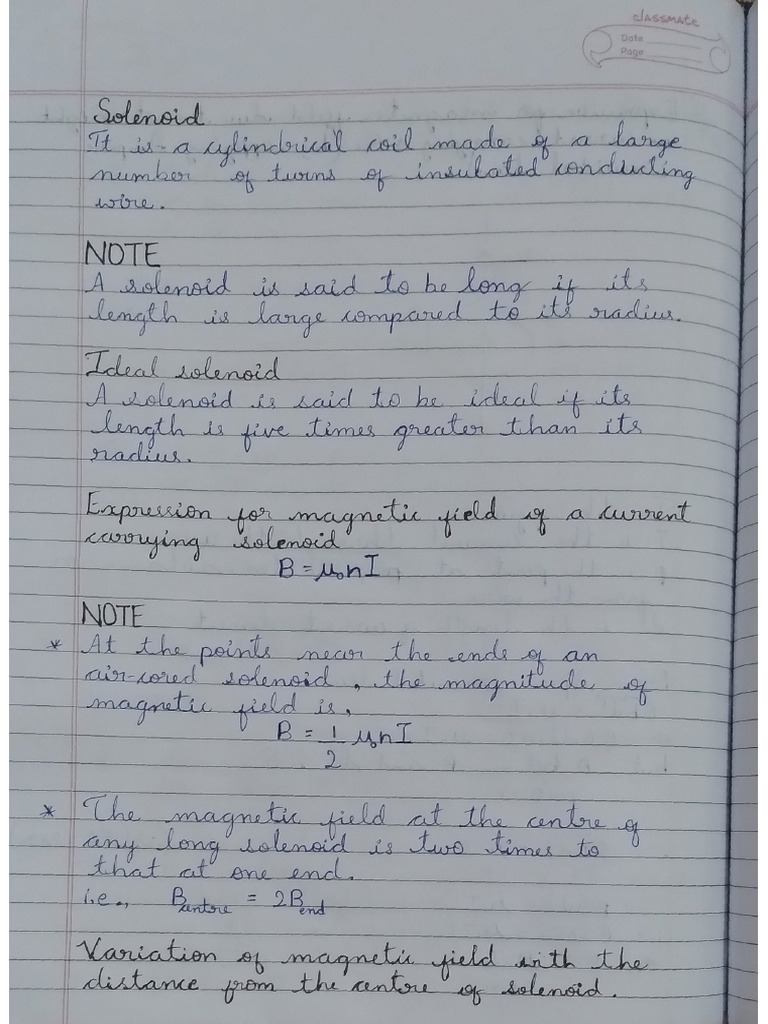 classmate
Date
Page
Solenoid
It is a cylindrical coil made of a large
number of turns of insulated conducting
wire.
NOTE
A solenoid is said to be long if its
length is large compared to its radius.
Ideal solenoid
A solenoid is said to be ideal if its
length is five times greater than its
radius.
Expression for magnetic field of a current
carrying solenoid
B = μ₀nI
NOTE
* At the points near the ends of an
air-cored solenoid, the magnitude of
magnetic field is,
B = 1/2 μ₀nI
* The magnetic field at the centre of
any long solenoid is two times to
that at one end.
i.e., Bcentre = 2Bend
Variation of magnetic field with the
distance from the centre of solenoid.